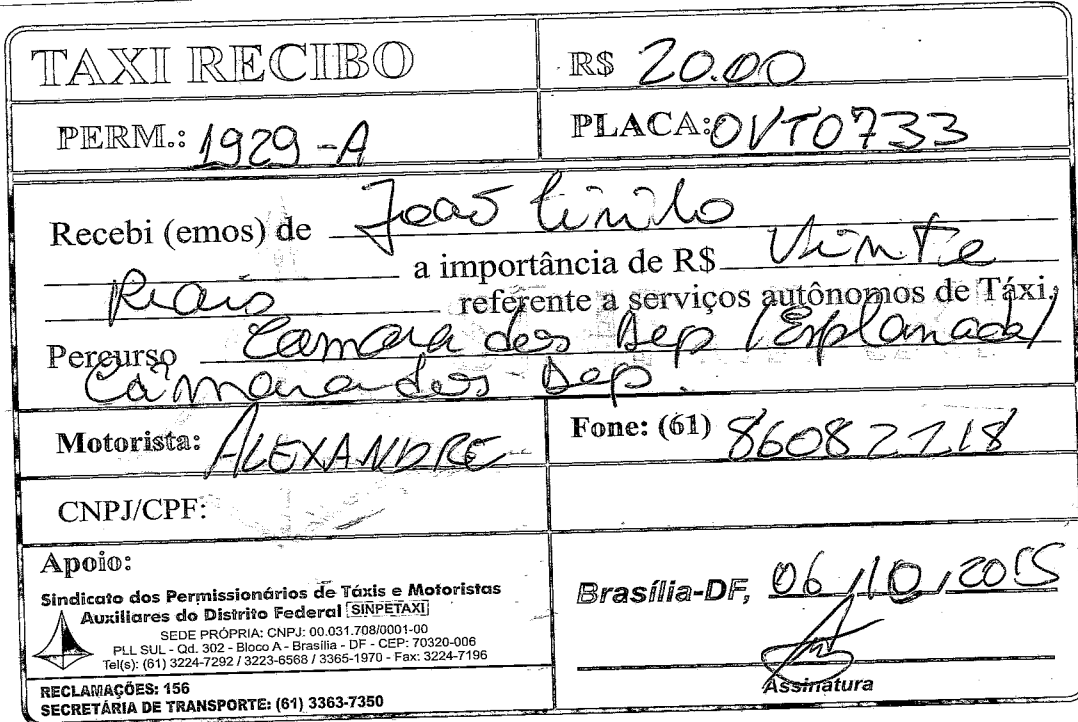 TAXI RECIBO
R$ 20.00
PERM.: 1929-A
PLACA: OVT0733
Recebi (emos) de João
a importância de R$ Vinte
Reais referente a serviços autônomos de Táxi.
Percurso Camara dos Dep / Esplanada /
Câmara dos Dep.
Motorista: ALEXANDRE
Fone: (61)
CNPJ/CPF:
Apoio:
Sindicato dos Permissionários de Táxis e Motoristas
Auxiliares do Distrito Federal SINPETAXI
SEDE PRÓPRIA: CNPJ: 00.031.708/0001-00
PLL SUL - Qd. 302 - Bloco A - Brasília - DF - CEP: 70320-006
Tel(s): (61) 3224-7292 / 3223-6568 / 3365-1970 - Fax: 3224-7196
RECLAMAÇÕES: 156
SECRETÁRIA DE TRANSPORTE: (61) 3363-7350
Brasília-DF, 06/10/2015
Assinatura